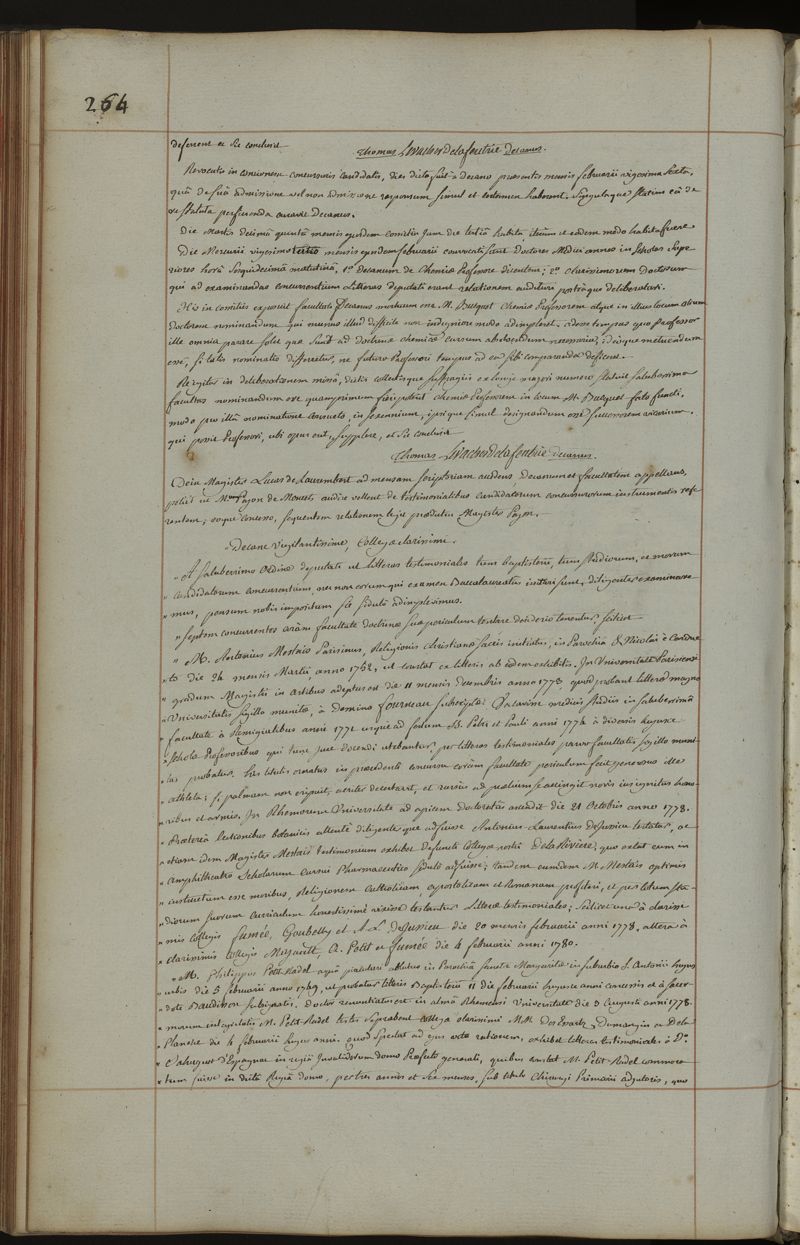 264
deferent et sic conclusit
Thomas Levacher Delafeutrie Decanus.
Revocatis in concionem concursuris candidatis, dies dicta fuit a decano praesentis mensis februarii vigesima sexta,
quâ de suâ admissione vel non admissione responsum simul et testimen haberent. Singulaque statim eâ de
re statuta perficienda curavit Decanus.
Die Martis decimâ quintâ mensis ejusdem comitia jam die tertiâ habita iterum et eodem modo habita fuere.
Die Mercurii vigesimo tertio mensis ejusdem februarii convocati sunt Doctores Medici omnes in Scholas Supe
riores horâ sesquidecimâ matutinâ, 1º Decanum de Chemiae Professore dicentem; 2º clarissimorum Doctorum
qui ad examinandas concurrentium Litteras deputati erant relationem audituri, postràque deliberaturi.
His in comitiis exposuit facultati Decanus mortuum esse M. Bucquet Chemiae Professorem atque in illius locum alium
doctorem nominandum qui munus illud difficile non indigniore modo adimpleret. Adesse tempus quo Professor
ille omnia parare solet quae sunt ad doctrinae chemicae cursum absolvendum necessaria; ideoque metuendum
esse, si talis nominatio differretur, ne futuro Professori tempus ad ea sibi comparanda deficeret.
Re igitur in deliberationem missâ, dictis collectisque suffragiis ex longe majori numero statuit saluberrima
facultas nominandum esse quamprimum Chemiae Professorem in locum M. Bucquet fato functi,
modo pro illâ nominatione consueto, in sexennium, ipsique simul designandum esse successorem vicarium
qui posset Professori, ubi opus erit, supplere, et sic conclusit
Thomas Levacher Delafeutrie Decanus.
Dein Magister Lucas de Lauremberg ad mensam scriptoriam accedens Decanum et facultatem appellans,
petiit ut M. Pajon de Moncets audire vellent de testimonialibus candidatorum concursurorum instrumentis refe
rentem; eoque concesso, sequentem relationem legit praedictus Magister Pajon.
„ Decane Vigilantissime, Collegae clarissimi.
„ A saluberrimo Ordine deputati ut litteras testimoniales tum baptisterii, tum studiorum, ac morum
„ candidatorum concurrentium, nec non eorum qui examen Baccalaureatus inituri sunt, diligenter examinare
„ mus, pensum nobis impositum sic sedulo adimplevimus.
„ Septem concurrentes coràm facultate doctrinae suae periculum tentare desiderio tenentur, scilicet
„ M. Antonius Mestais Parisinus, Religionis christianae sacris initiatus, in Parochia S. Nicolai è Cardine
„ to die 24 mensis Martii, anno 1752, ut constat ex litteris ab eodem exhibitis. In Universitate Parisiensi
„ gradum Magistri in artibus adeptus est die 11 mensis decembris anno 1773 quod probant litterae magno
„ Universitatis sigillo munitae, à Domino Fourneau subscriptae. Vacavit medicis studiis in saluberrimâ
„ facultate à Remigialibus anni 1771 usque ad festum SS. Petri et Pauli anni 1774 à diversis hujusce
„ scholae Professoribus qui tunc jure docendi utebantur, per litteras testimoniales parvo facultatis sigillo muni
„ tas probatur. His titulis ornatus in praecedenti concursu coràm facultate periculum fecit generosus ille
„ athleta; si palmam non eripuit, acriter decertavit, et rursus ad praelium se accingit novis insignitus hono
„ ribus et armis. In Rhemorum Universitate ad apicem doctoratûs ascendit die 21 Octobris anno 1773.
„ Praeterea lectionibus botanicis attentè diligenterque adfuisse Antonius Laurentius De Jussieu testatur, ac
„ etiam idem Magister Mestais testimonium exhibet defuncti Collegae nostri De la Riviere, quo extat eum in
„ amphitheatro Scholarum cursui Pharmaceutico sedulò adfuisse; tandem eumdem M. Mestais optimis
„ instructum esse moribus, Religionem Catholicam apostolicam et Romanam profiteri, et per totum stu-
„ diorum suorum curriculum honestissimè vixisse testantur litterae testimoniales; scilicet unae à clarissi
„ mis Collegis Fumée, Goubelly et A. L. De Jussieu die 20 mensis februarii anni 1778, alterae à
„ clarissimis Collegis Majault, A. Petit et Fumée die 4 februarii anni 1780.
„ M. Philippus Petit-Radel aquâ piaculari ablutus in Parochiâ sanctae Margaritae in suburbio S. Antonii hujus
„ urbis die 5 februarii anno 1749, ut probatur litteris Baptisterii 11 die februarii hujusce anni concessis et à sacer
„ dote Baudisson subsignatis. Doctor renuntiatus est in almâ Rhemensi Universitate die 3 Augusti anni 1778.
„ morum integritatis M. Petit-Radel testes superabent Collegae clarissimi MM. Des Essartz, Dumangin et De la
„ Planche die 4 februarii hujus anni. quod spectat ad ejus vitae rationem, exhibet litteras testimoniales à D.º
„ Sahuguet d'Espagnac in regiâ Invalidorum domo Praefecto generali, quibus constat M. Petit-Radel commora
„ tum fuisse in dictâ Regiâ domo, per tres annos et sex menses, sub titulo Chirurgi Primarii adjutoris, quo